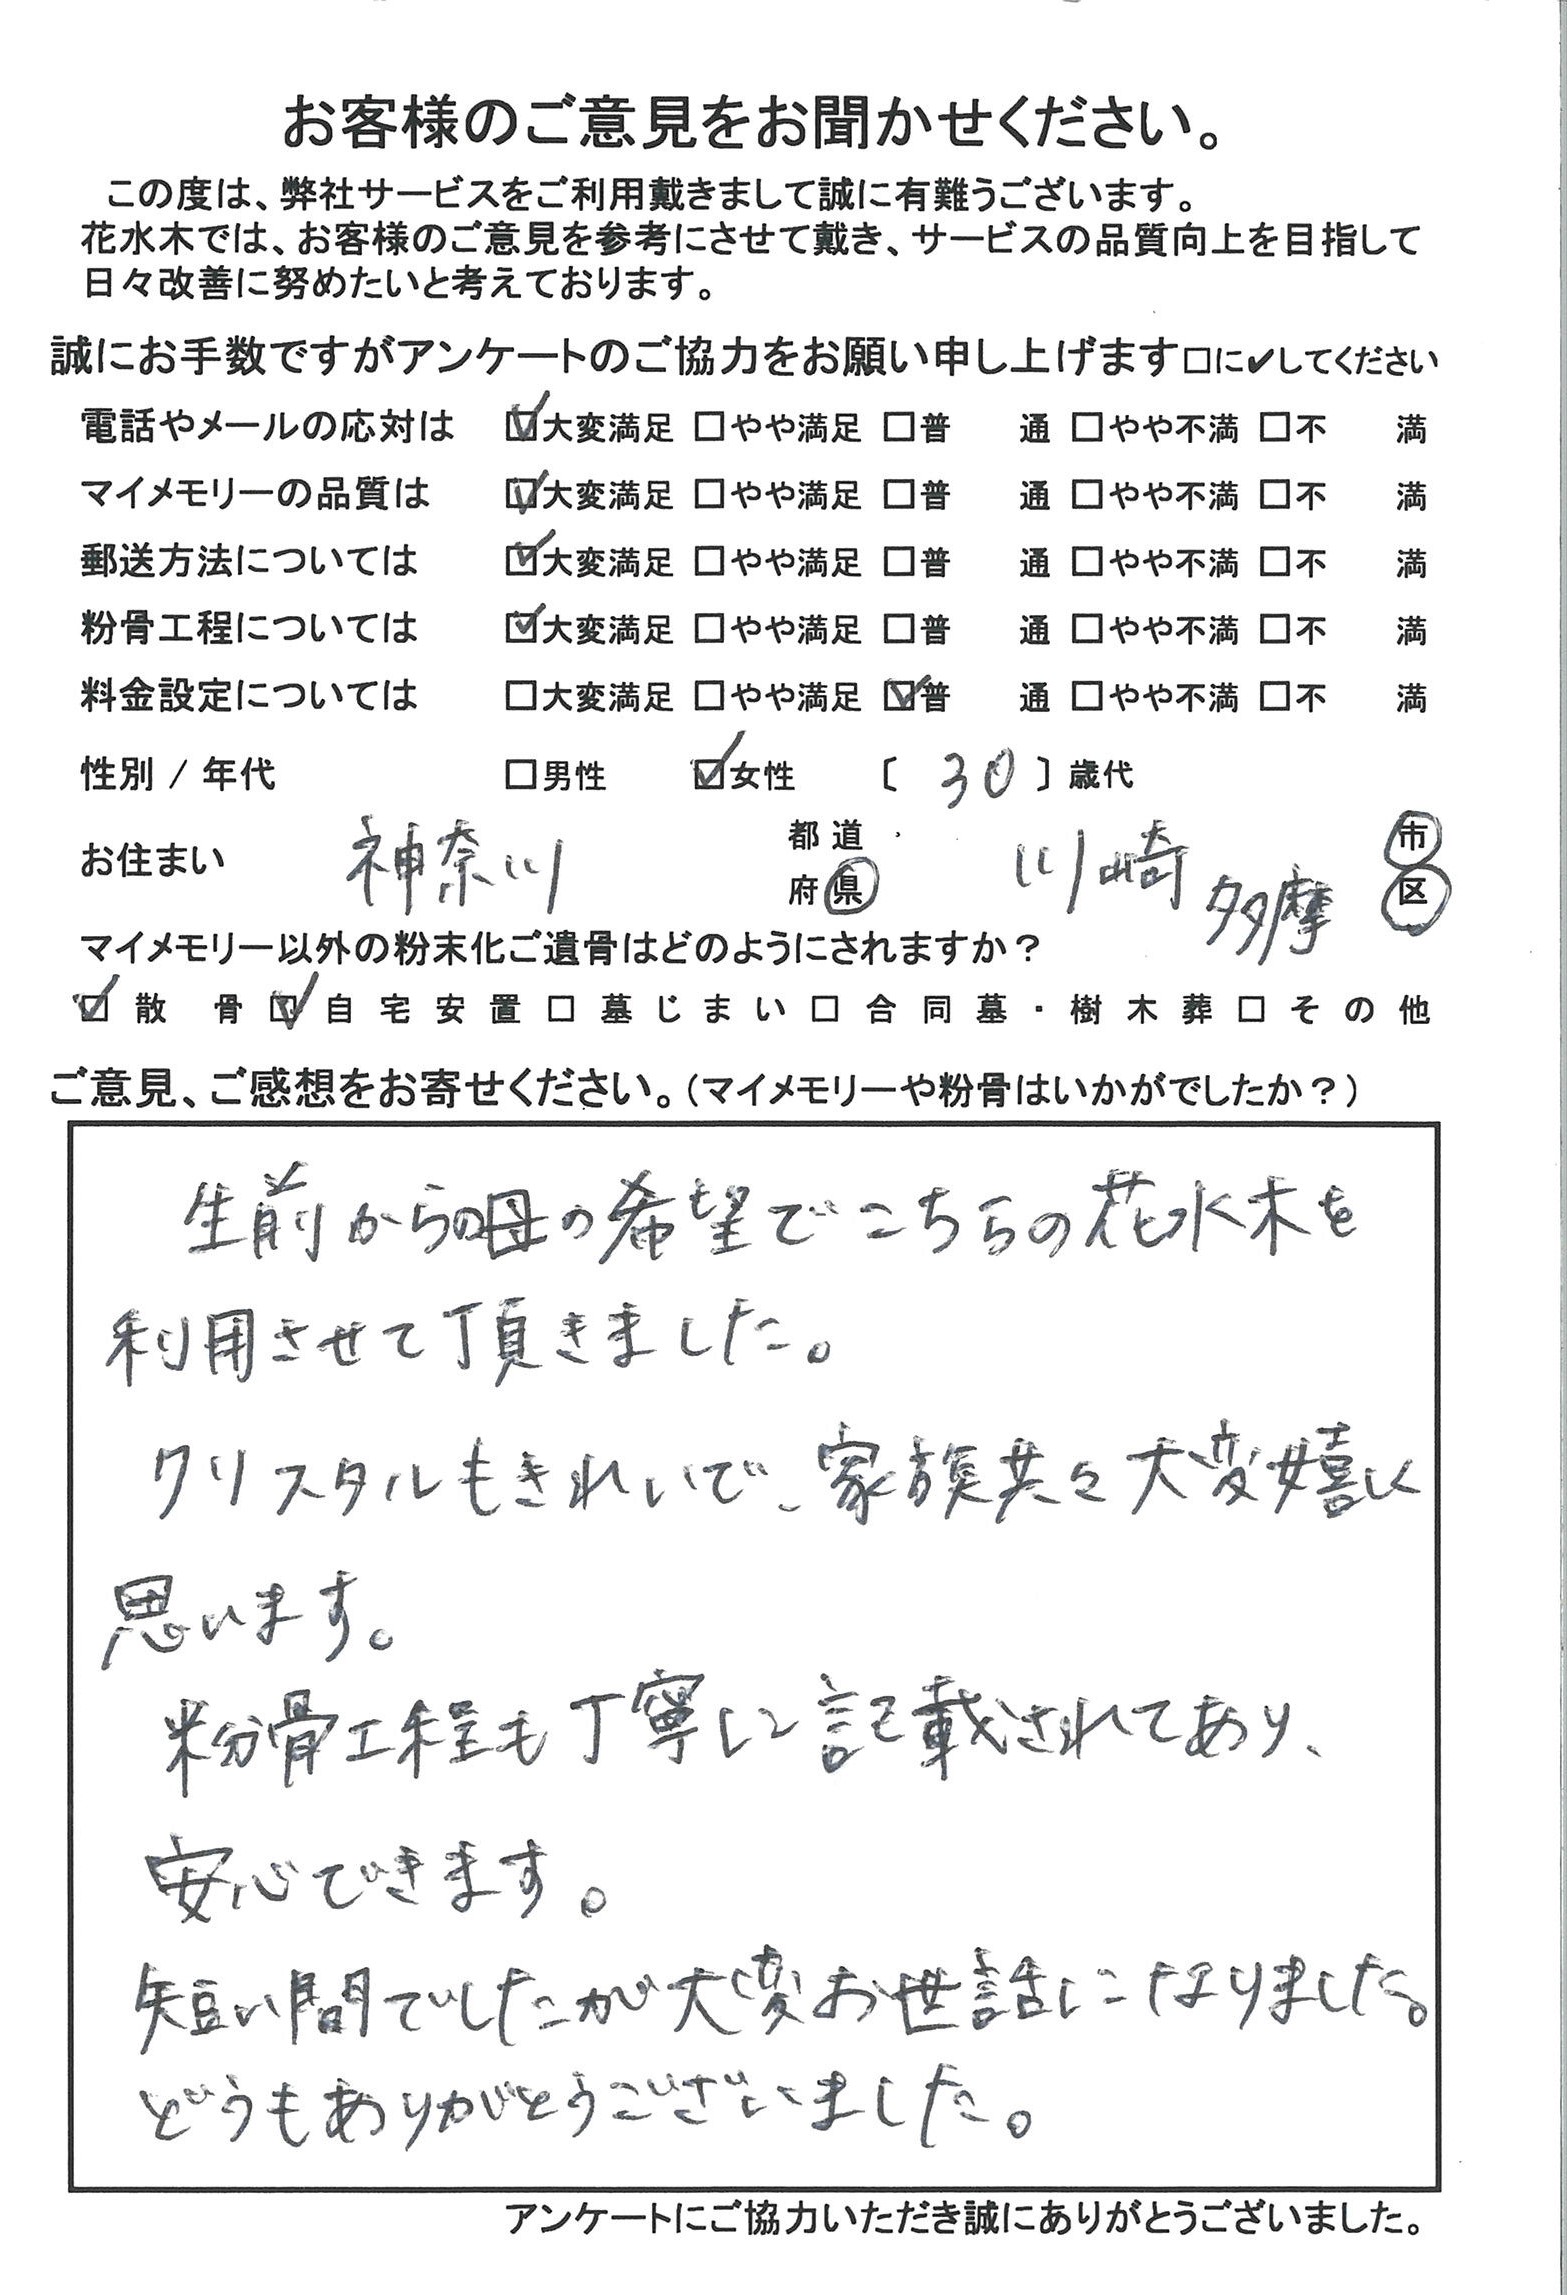 お客様のご意見をお聞かせください。
この度は、弊社サービスをご利用戴きまして誠に有難うございます。
花水木では、お客様のご意見を参考にさせて戴き、サービスの品質向上を目指して
日々改善に努めたいと考えております。
誠にお手数ですがアンケートのご協力をお願い申し上げます□に✔してください
電話やメールの応対は ☑大変満足 □やや満足 □普 通 □やや不満 □不 満
マイメモリーの品質は ☑大変満足 □やや満足 □普 通 □やや不満 □不 満
郵送方法については ☑大変満足 □やや満足 □普 通 □やや不満 □不 満
粉骨工程については ☑大変満足 □やや満足 □普 通 □やや不満 □不 満
料金設定については □大変満足 □やや満足 ☑普 通 □やや不満 □不 満
性別 / 年代 □男性 ☑女性 〔 30 〕歳代
お住まい 神奈川 都道府県 川崎 市 多摩 区
マイメモリー以外の粉末化ご遺骨はどのようにされますか？
☑散 骨 ☑自宅安置 □墓じまい □合同墓・樹木葬 □その他
ご意見、ご感想をお寄せください。（マイメモリーや粉骨はいかがでしたか？）
生前からの母の希望でこちらの花水木を
利用させて頂きました。
クリスタルもきれいで、家族共々大変嬉しく
思います。
粉骨工程も丁寧に記載されてあり、
安心できます。
短い間でしたが大変お世話になりました。
どうもありがとうございました。
アンケートにご協力いただき誠にありがとうございました。